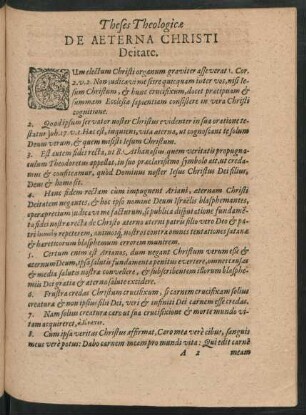 Theses Theologicæ
DE AETERNA CHRISTI
Deitate.
CUm electum Christi organum graviter asseverat 1. Cor.
2. v. 2. Non judicavi me scire quicquam inter vos, nisi Ie-
sum Christum, & hunc crucifixum, docet præcipuam &
summam Ecclesiæ sapientiam consistere in vera Christi
cognitione.
2. Quod ipsum servator noster Christus evidenter in sua oratione te-
statur Joh. 17. v. 3. Hæc est, inquiens, vita æterna, ut cognoscant te solum
Deum verum, & quem misisti Iesum Christum.
3. Est autem fides recta, ut B. Athanasius, quem veritatis propugna-
culum Theodoretus appellat, in suo præclarissimo symbolo ait, ut creda-
mus & confiteamur, quòd Dominus noster Iesus Christus Dei filius,
Deus & homo sit.
4. Hanc fidem rectam cùm impugnent Ariani, æternam Christi
Deitatem negantes, & hoc ipso nomine Deum Israëlis blasphemantes,
operæ precium judicavimus facturos, si publica disputatione fundamen-
ta fidei nostræ rectæ de Christo æterno æterni patris filio vero Deo &
patribunda repeteremus, animosq; nostros contra omnes tentationes satanæ
& hæreticorum blasphemum errorem muniremus.
5. Certum enim est Arianos, dum negant Christum verum esse &
æternum Deum, ipsa salutis fundamenta penitus evertere, omnes causas
& media salutis nostræ convellere, & substribuentem illorum blasphe-
miis Dei gratia & æterna salute excidere.
6. Frustra credas Christum crucifixum, si carnem crucifixam solius
creaturæ & non ipsius filii Dei, veri & infiniti Dei carnem esse credas.
7. Nam solius creaturæ caro ut sua crucifixione & morte mundo vi-
tam acquireret,
8. Cùm ipsa veritas Christus affirmat, Caro mea verè cibus, sanguis
meus verè potus: Dabo carnem meam pro mundi vita: Qui edit carnē
A 2 meam